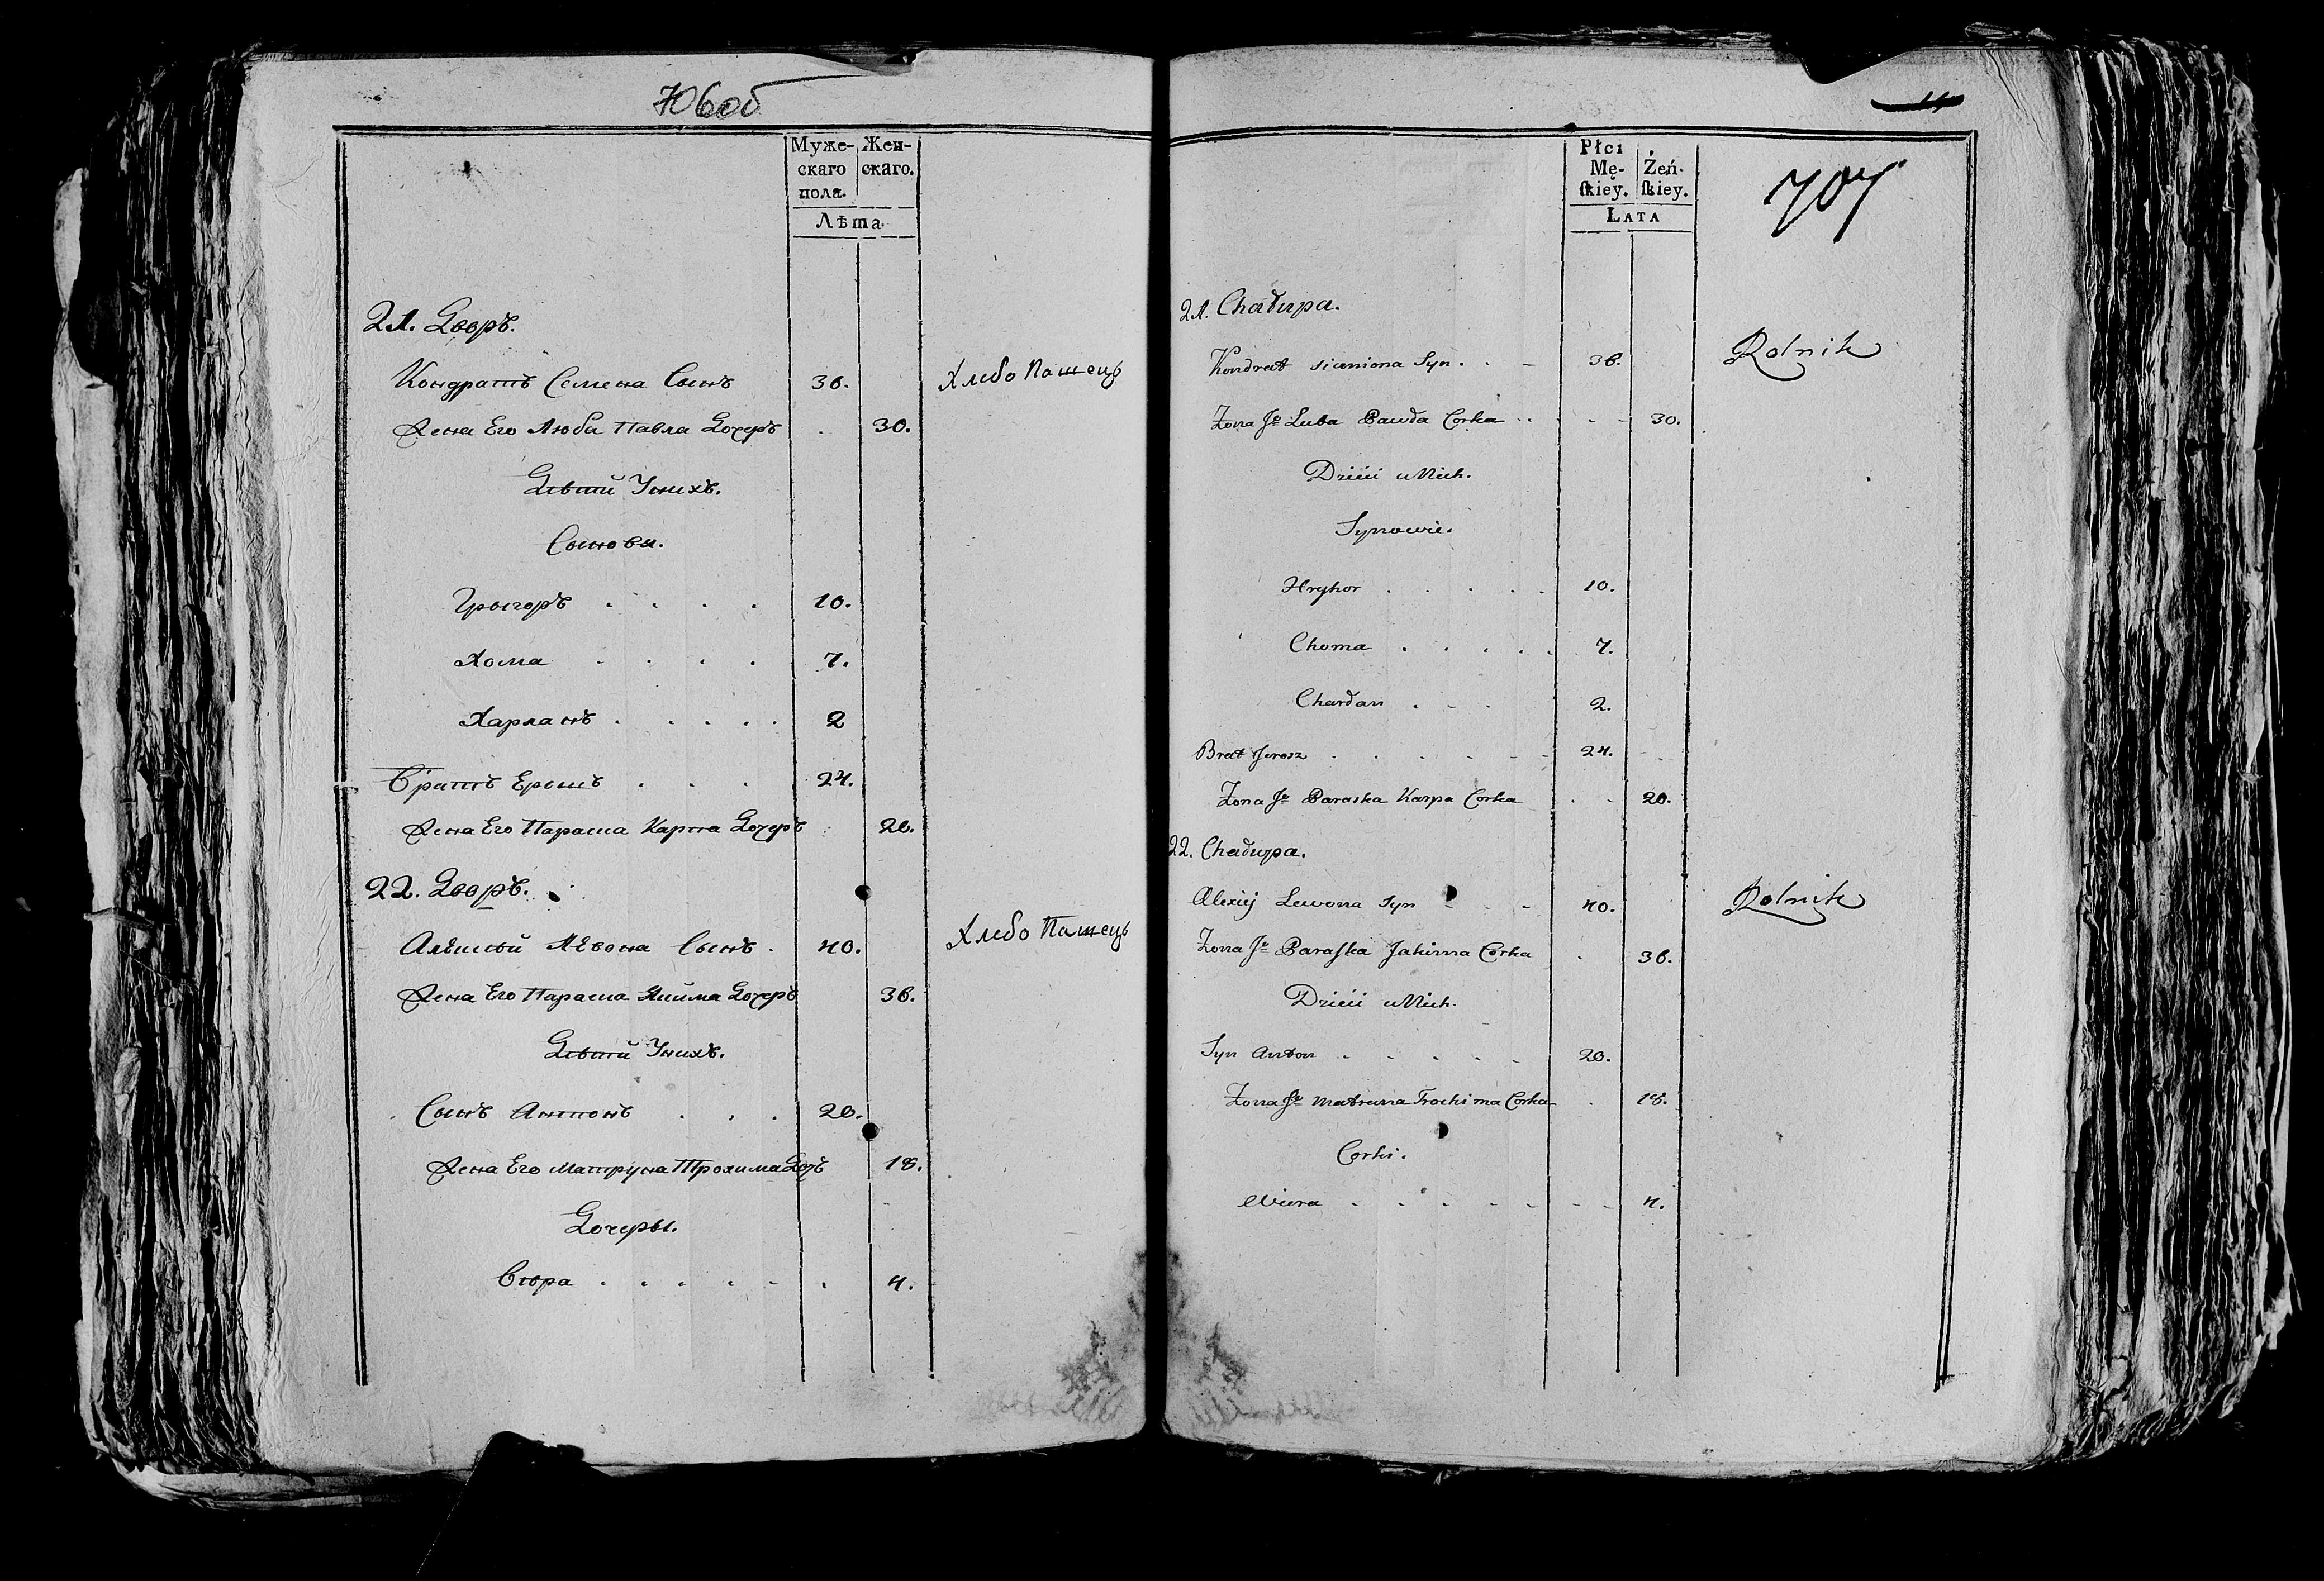 706об
Муже-
скаго
пола.
Жен-
скаго.
Лѣта.
21. Дворъ.
Кондратъ Семена Сынъ 36. Хлебо Пашецъ
Жена Его Люба Павла Дочеръ . 30.
Дѣтй Унихъ.
Сыновя.
Грыгоръ . . . . 10.
Хома . . . . 7.
Харланъ . . . . . 2
Братъ Ерышъ . . . 24.
Жена Его Параска Карпа Дочеръ . 20.
22. Дворъ.
Алексѣй Лѣвона Сынъ . 40. Хлебо Пашецъ
Жена Его Параска Якима Дочеръ 36.
Дѣтй Унихъ.
Сынъ Антонъ . . . 20.
Жена Его Матруна Трохима Дочъ 18.
Дочеры.
Вѣра . . . . . . 4.
707
Płci
Mę-
ſkiey.
Żeń-
ſkiey.
LATA
21. Chałupa.
Kondrat Siemiona Syn . . - 36. Rolnik
Zona Jo Luba Pawła Corka . . . . - 30.
Dzieci u Nich.
Synowie.
Hryhor . . . . . 10.
Choma . . . . . 7.
Charłan . - . 2.
Brat Jerosz . . . . - - - 24.
Zona Jo Paraska Karpa Corka . . 20.
22. Chałupa.
Alexiej Lewona Syn - - - 40. Rolnik
Zona Jo Paraſka Jakima Corka . 36.
Dzieci u Nich.
Syn Anton . . . . . 20.
Zona Jo Matruna Trochima Corka . 18.
Corki.
Wiera . . . . . - - - 4.